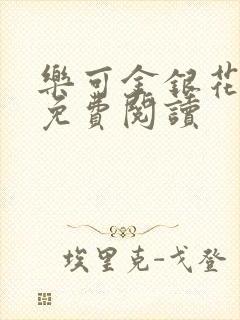 樂可金銀花
免費閱讀
埃里克-戈登